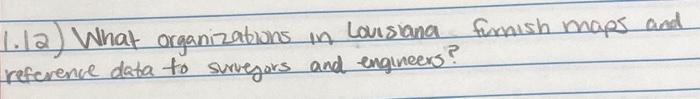 1.12) What organizations in Louisiana furnish maps and
reference data to surveyors and engineers?